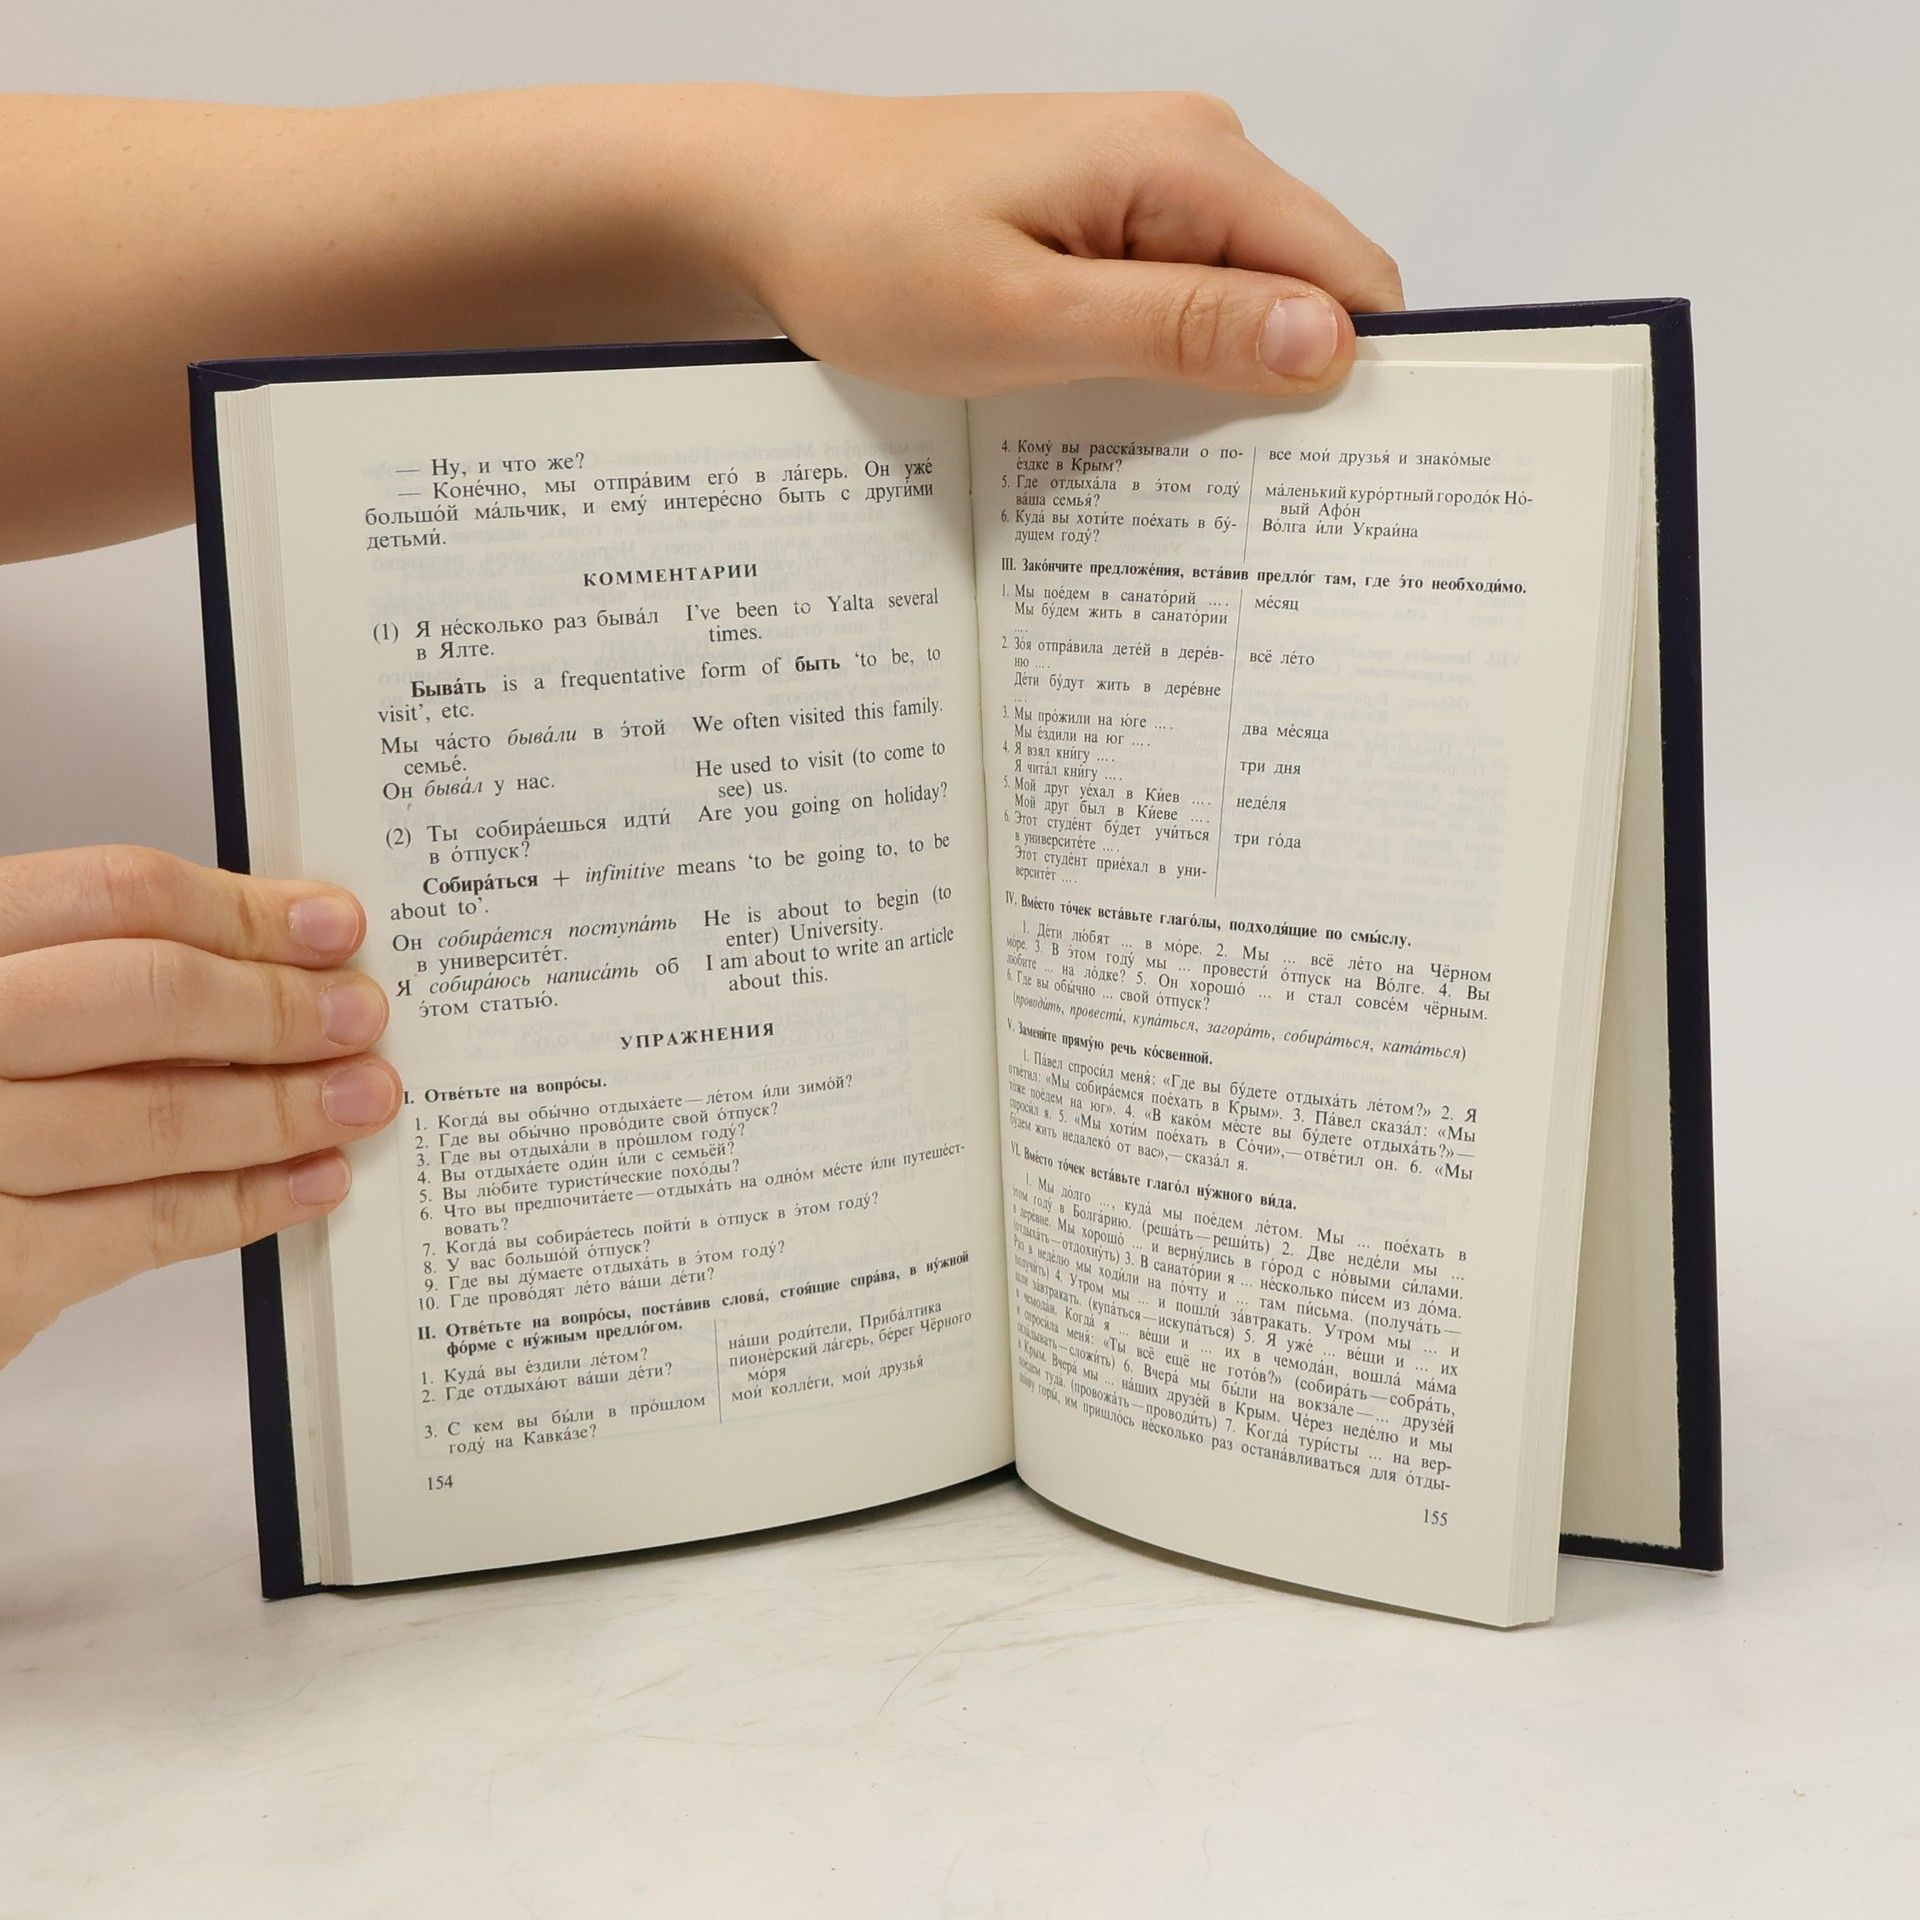 — Ну, и что же?
— Коне́чно, мы отпра́вим его́ в ла́герь. Он уже́
большо́й ма́льчик, и ему́ интере́сно быть с други́ми
детьми́.
КОММЕНТАРИИ
(1) Я не́сколько раз быва́л I've been to Yalta several
в Ялте. times.
Быва́ть is a frequentative form of быть ‘to be, to
visit’, etc.
Мы ча́сто быва́ли в э́той We often visited this family.
семье́.
Он быва́л у нас. He used to visit (to come to
see) us.
(2) Ты собира́ешься идти́ Are you going on holiday?
в о́тпуск?
Собира́ться + infinitive means ‘to be going to, to be
about to’.
Он собира́ется поступа́ть He is about to begin (to
в университе́т. enter) University.
Я собира́юсь написа́ть об I am about to write an article
э́том статью́. about this.
УПРАЖНЕНИЯ
I. Отве́тьте на вопро́сы.
1. Когда́ вы обы́чно отдыха́ете—ле́том и́ли зимо́й?
2. Где вы обы́чно прово́дите свой о́тпуск?
3. Где вы отдыха́ли в про́шлом году́?
4. Вы отдыха́ете оди́н и́ли с семьёй?
5. Вы лю́бите туристи́ческие похо́ды?
6. Что вы предпочита́ете—отдыха́ть на одно́м ме́сте и́ли путеше́ст-
вовать?
7. Когда́ вы собира́етесь пойти́ в о́тпуск в э́том году́?
8. У вас большо́й о́тпуск?
9. Где вы ду́маете отдыха́ть в э́том году́?
10. Где прово́дят ле́то ва́ши де́ти?
II. Отве́тьте на вопро́сы, поста́вив слова́, стоя́щие спра́ва, в ну́жной
фо́рме с ну́жным предло́гом.
1. Куда́ вы е́здили ле́том? на́ши роди́тели, Приба́лтика
2. Где отдыха́ют ва́ши де́ти? пионе́рский ла́герь, бе́рег Чёрного
мо́ря
3. С кем вы бы́ли в про́шлом мои́ колле́ги, мои́ друзья́
году́ на Кавка́зе?
154
4. Кому́ вы расска́зывали о по- все мои́ друзья́ и знако́мые
е́здке в Крым?
5. Где отдыха́ла в э́том году́ ма́ленький куро́ртный городо́к Но́-
ва́ша семья́? вый Афо́н
6. Куда́ вы хоти́те пое́хать в бу́- Во́лга и́ли Украи́на
дущем году́?
III. Зако́нчите предложе́ния, вста́вив предло́г там, где э́то необходи́мо.
1. Мы пое́дем в санато́рий .... ме́сяц
Мы бу́дем жить в санато́рии
....
2. Зо́я отпра́вила дете́й в дере́в- всё ле́то
ню ....
Де́ти бу́дут жить в дере́вне
....
3. Мы про́жили на ю́ге .... два ме́сяца
Мы е́здили на юг ....
4. Я взял кни́гу .... три дня
Я чита́л кни́гу ....
5. Мой друг уе́хал в Ки́ев .... неде́ля
Мой друг был в Ки́еве ....
6. Этот студе́нт бу́дет учи́ться три го́да
в университе́те ....
Этот студе́нт прие́хал в уни-
верситет ....
IV. Вме́сто то́чек вста́вьте глаго́лы, подходя́щие по смы́слу.
1. Де́ти лю́бят ... в мо́ре. 2. Мы ... всё ле́то на Чёрном
мо́ре. 3. В э́том году́ мы ... провести́ о́тпуск на Во́лге. 4. Вы
лю́бите ... на ло́дке? 5. Он хорошо́ ... и стал совсе́м чёрным.
6. Где вы обы́чно ... свой о́тпуск?
(проводи́ть, провести́, купа́ться, загора́ть, собира́ться, ката́ться)
V. Замени́те пряму́ю речь ко́свенной.
1. Па́вел спроси́л меня́: «Где вы бу́дете отдыха́ть ле́том?» 2. Я
отве́тил: «Мы собира́емся пое́хать в Крым». 3. Па́вел сказа́л: «Мы
то́же пое́дем на юг». 4. «В како́м ме́сте вы бу́дете отдыха́ть?»—
спроси́л я. 5. «Мы хоти́м пое́хать в Со́чи»,—отве́тил он. 6. «Мы
бу́дем жить недалеко́ от вас»,—сказа́л я.
VI. Вме́сто то́чек вста́вьте глаго́л ну́жного ви́да.
1. Мы до́лго ..., куда́ мы пое́дем ле́том. Мы ... пое́хать в
э́том году́ в Болга́рию. (реша́ть—реши́ть) 2. Две неде́ли мы ...
в дере́вне. Мы хорошо́ ... и верну́лись в го́род с но́выми си́лами.
(отдыха́ть—отдохну́ть) 3. В санато́рии я ... не́сколько пи́сем из до́ма.
Раз в неде́лю мы ходи́ли на по́чту и ... там пи́сьма. (получа́ть—
получи́ть) 4. Утром мы ... и пошли́ за́втракать. Утром мы ... и
шли за́втракать. (купа́ться—искупа́ться) 5. Я уже́ ... ве́щи и ... их
в чемода́н. Когда́ я ... ве́щи и ... их в чемода́н, вошла́ ма́ма
и спроси́ла меня́: «Ты всё ещё не гото́в?» (собира́ть—собра́ть,
скла́дывать—сложи́ть) 6. Вчера́ мы бы́ли на вокза́ле—... друзе́й
в Крым. Вчера́ мы ... на́ших друзе́й в Крым. Че́рез неде́лю и мы
пое́дем туда́. (провожа́ть—проводи́ть) 7. Когда́ тури́сты ... на вер-
шину горы́, им пришло́сь не́сколько раз остана́вливаться для о́тды-
155